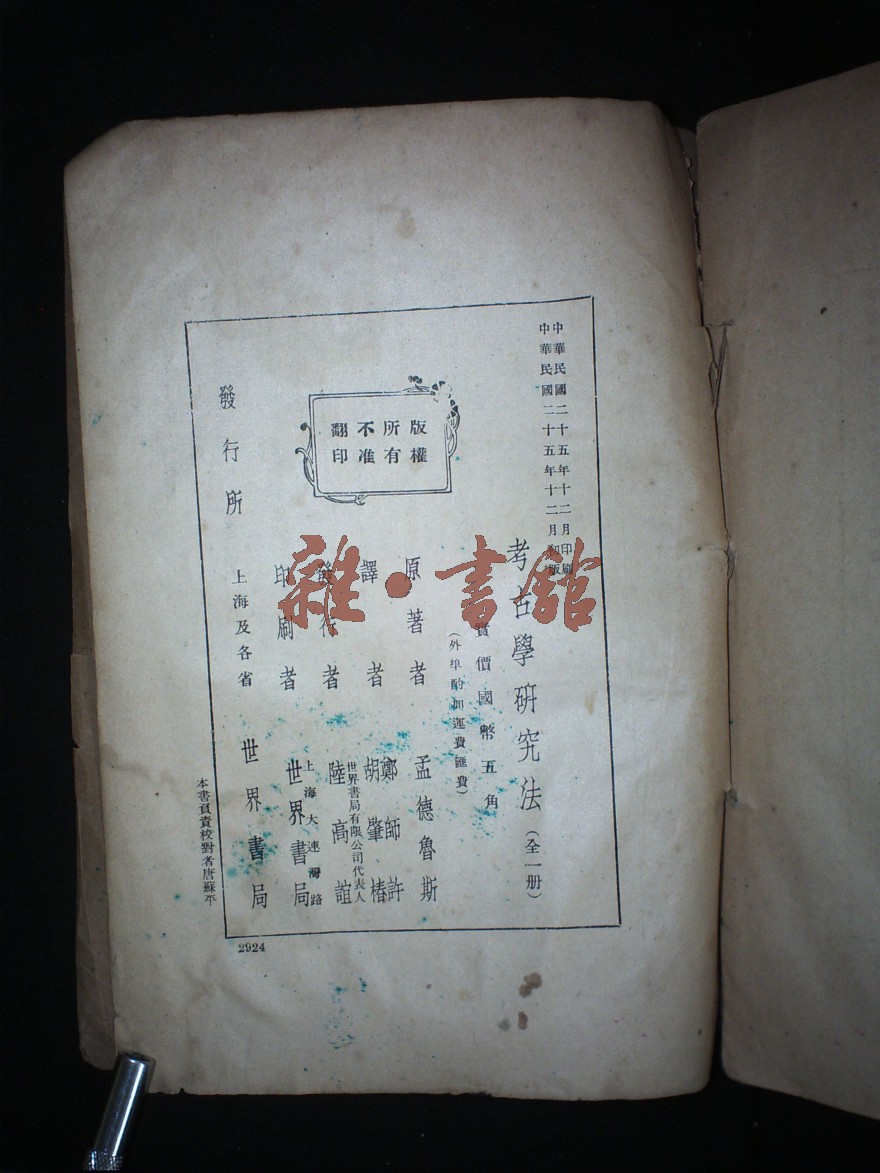 中華民國二十五年十二月印刷
中華民國二十五年十二月初版
考古學研究法(全一册)
實價國幣五角
(外埠酌加運費匯費)
版權所有
不准翻印
原著者 孟德魯斯
譯者 鄭師許 胡肇椿
發行者 世界書局有限公司代表人 陸高誼
印刷者 上海大連灣路 世界書局
發行所 上海及各省 世界書局
本書負責校對者唐蘇平
2924
雜·書館